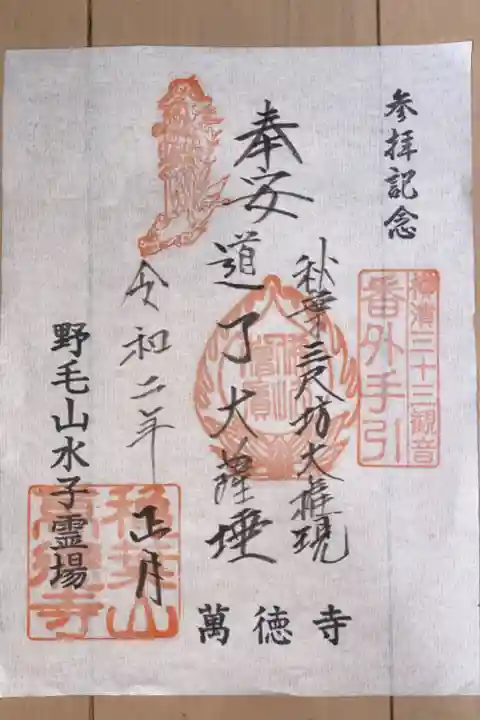 参拝記念
横濱三十三観音
番外手引
秋葉三尺坊大権現
奉安
道了大薩埵
令和二年
正月
野毛山水子霊場
萬徳寺
秋葉山
萬徳寺